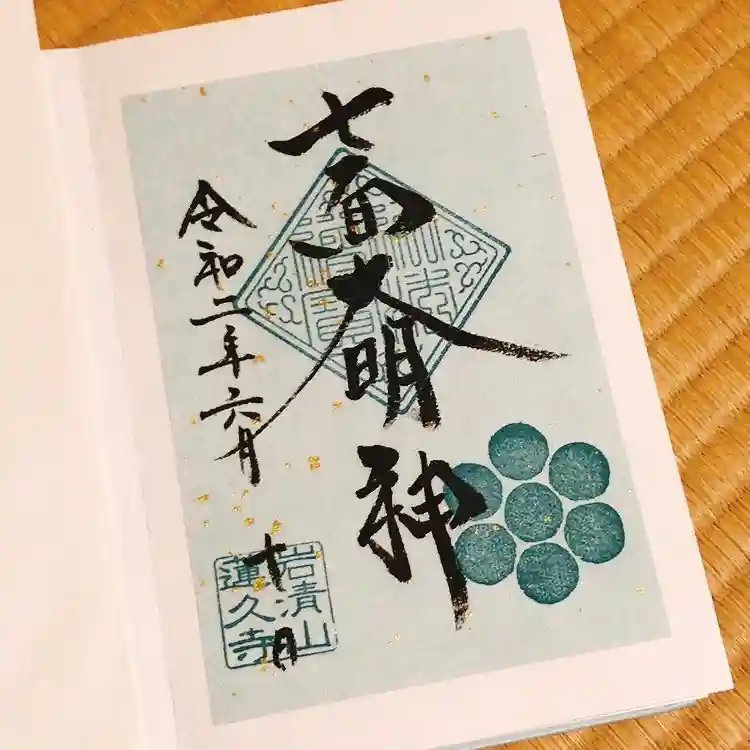 七面大明神
令和二年六月十日
岩清山
蓮久寺